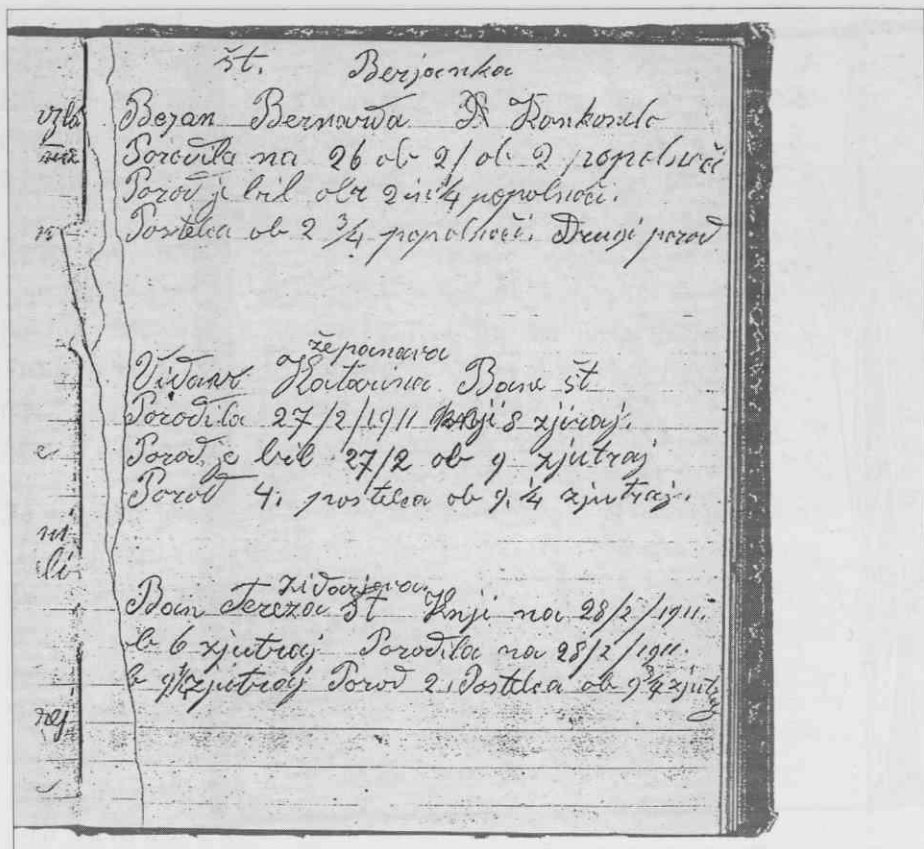 št. Berjanka
Bezan Bernarda
Porodila na 26 ob 2/ ob 2 popolnoči
Porod je bil obr 2 in 1/4 popolnoči.
Postelca ob 2 3/4 popolnoči. Drugi porod
županava
Vidanr Katarina Bane št
Porodila 27/2/1911 knji 8 zjutraj.
Porod je bil 27/2 ob 9 zjutraj
Porod 4. postelca ob 9. 1/4 zjutraj.
zidarjeva
Ban Tereza št Knji na 28/2/1911.
ob 6 zjutraj Porodila na 28/2/1911.
b 9 1/4 zjutraj Porod 2. Postelca ob 9 3/4 zjutraj